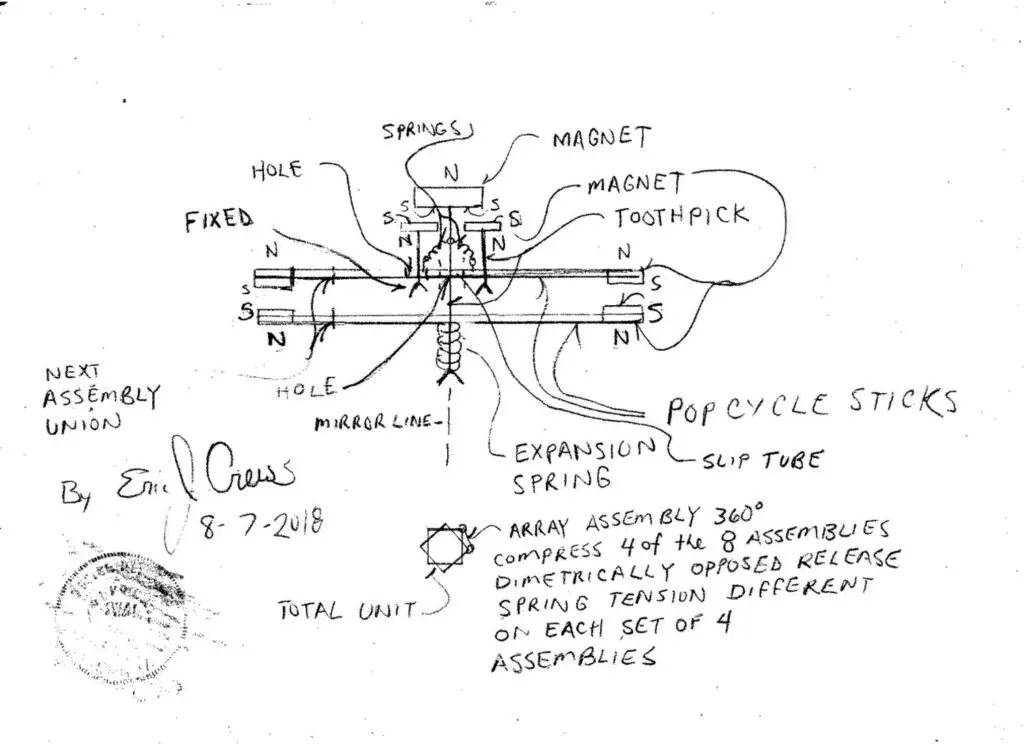 SPRINGS
MAGNET
HOLE
N
MAGNET
S S
FIXED
S S
TOOTHPICK
N N
N N
S S
S S
N N
NEXT
ASSEMBLY
UNION
HOLE
POPCYCLE STICKS
MIRROR LINE
EXPANSION
SPRING
SLIP TUBE
By Eric J Crews
8-7-2018
ARRAY ASSEMBLY 360°
COMPRESS 4 of the 8 ASSEMBLIES
DIMETRICALLY OPPOSED RELEASE
SPRING TENSION DIFFERENT
ON EACH SET OF 4
ASSEMBLIES
TOTAL UNIT